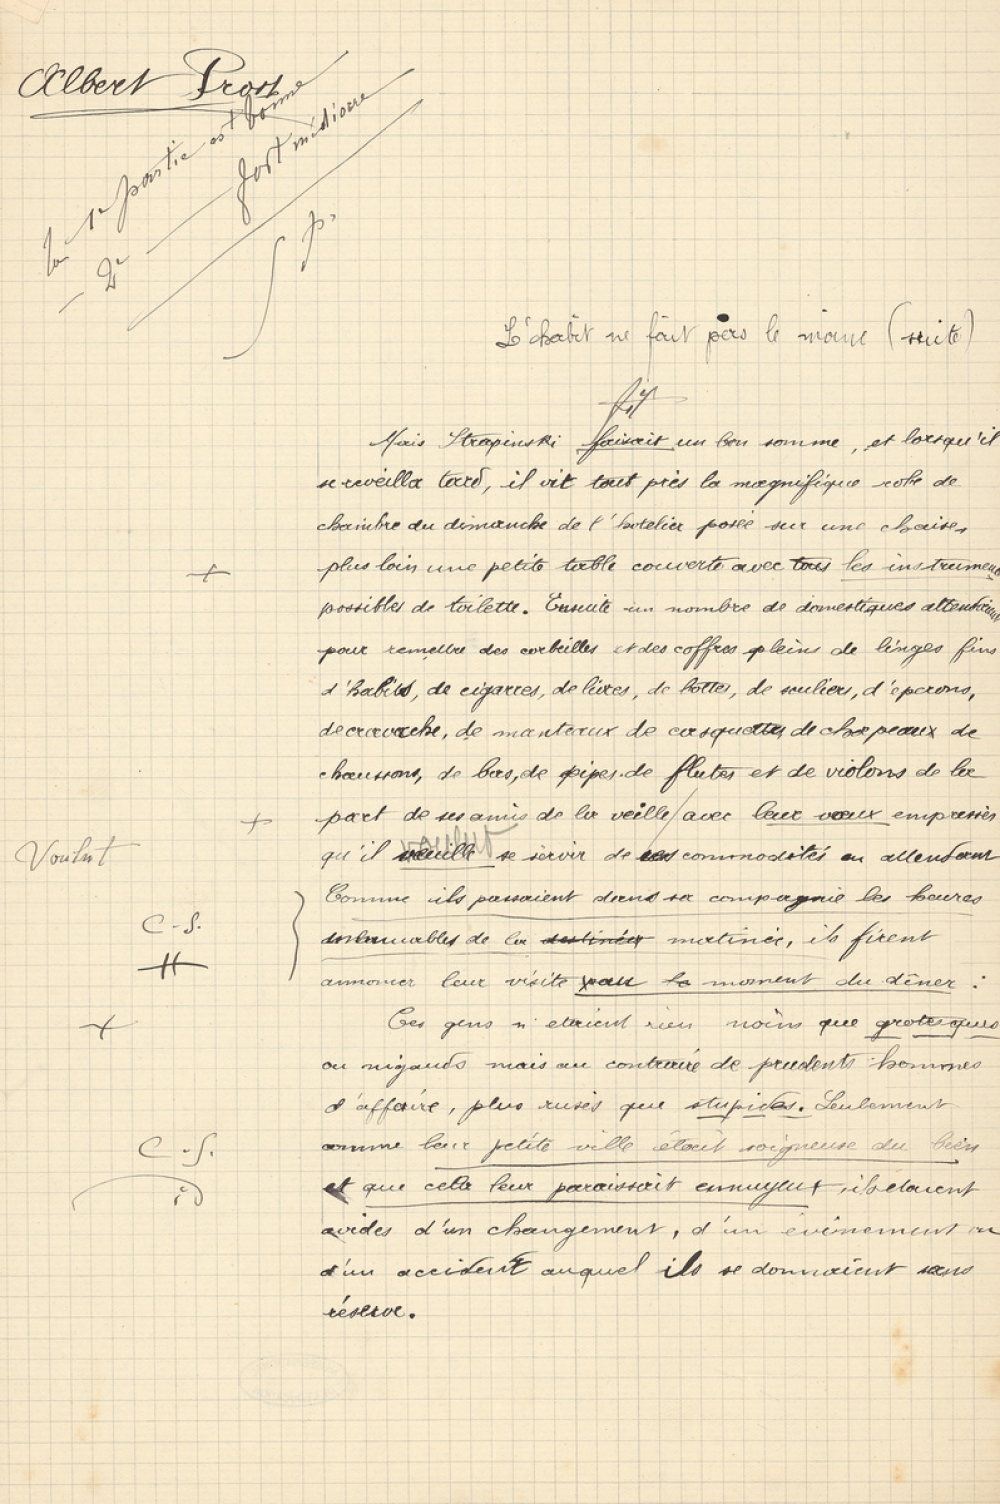 Albert Prost
la 1e partie est bonne
– 2e — fort médiocre
L'habit ne fait pas le moine (suite)
Mais Strapinski faisait un bon somme, et lorsqu'il
se réveilla tard, il vit tout près la magnifique robe de
chambre du dimanche de l'hotelier posée sur une chaise,
plus loin une petite table couverte avec tous les instruments
possibles de toilette. Ensuite un nombre de domestiques attendaient
pour remettre des corbeilles et des coffres pleins de linges fins
d'habits, de cigarres, de livres, de bottes, de souliers, d'éperons,
de cravache, de manteaux de casquettes de chapeaux de
chaussons, de bas, de pipes de flutes et de violons de la
part de ses amis de la veille / avec leur vœux empressés
voulut
Voulut
qu'il veuille se servir de ces commodités en attendant
Comme ils passaient dans sa compagnie les heures
C-S.
de la destinées matinée, ils firent
annoncer leur visite pour le moment du dîner :
Ces gens n'etaient rien moins que grotesques
ou nigauds mais au contraire de prudents hommes
d'affaire, plus rusés que stupides. Seulement
comme leur petite ville était soigneuse du bien
C-S.
et que cela leur paraissait ennuyeux, ils étaient
avides d'un changement, d'un évènement ou
d'un accident auquel ils se donnaient sans
réserve.